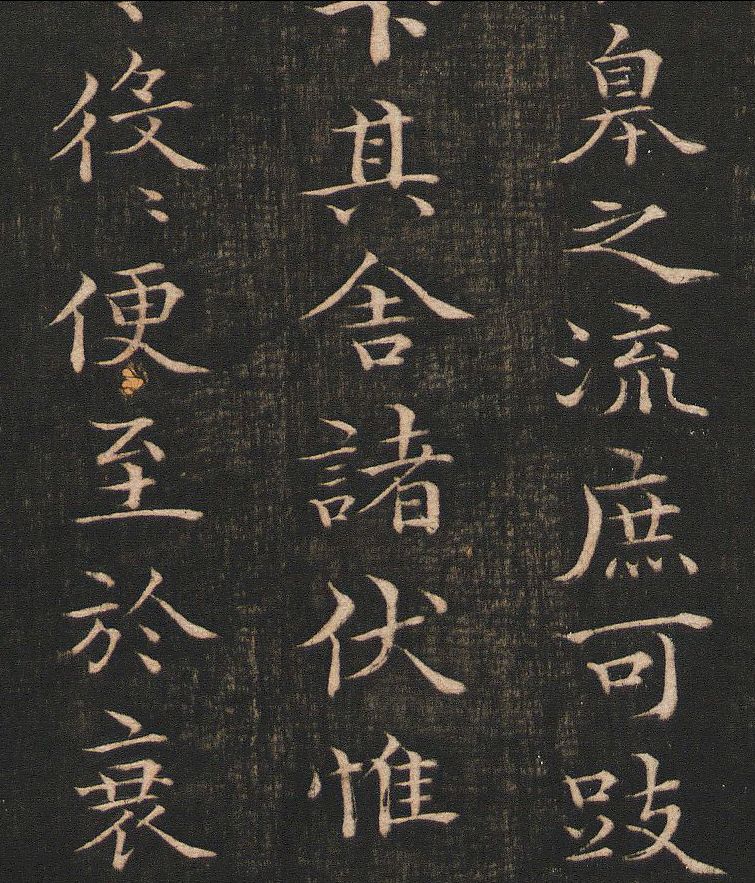 臯之流庶可跂
其舍諸伏惟
役〻便至於衰